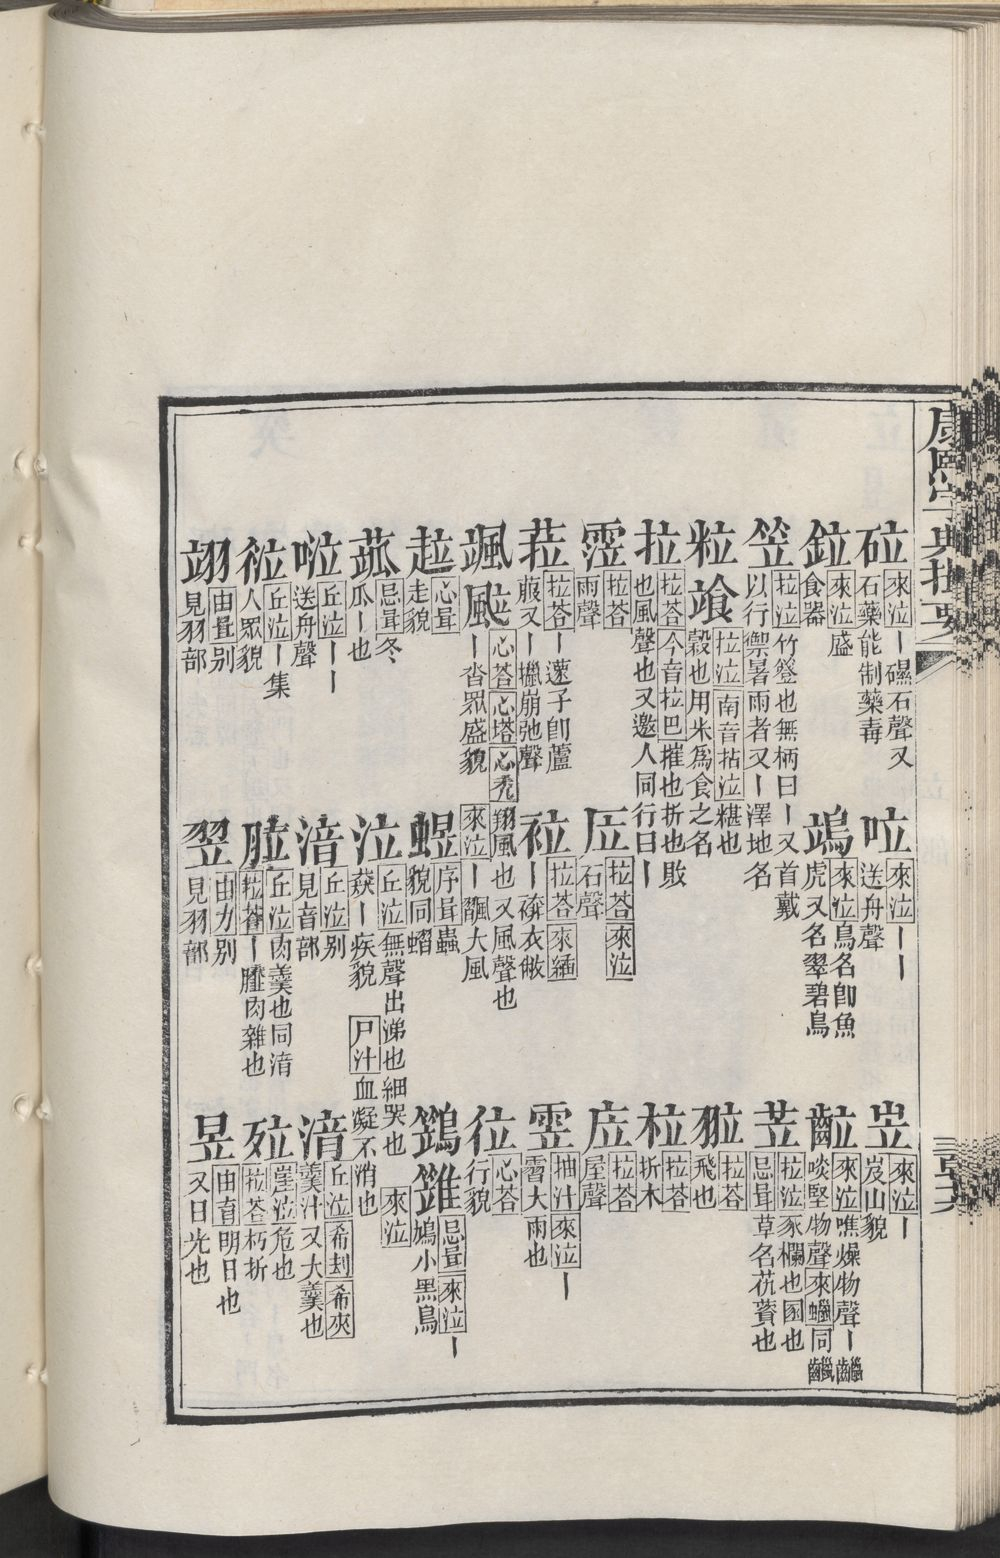 康熙字典撮要
砬 來泣｜礘石聲又石藥能制藥毒
㕸 來泣｜｜送舟聲
岦 來泣｜岌山貌
鉝 來泣盛食器
鴗 來泣鳥名卽魚虎又名翠碧鳥
齛 來泣噍燥物聲｜啖堅物聲來蠟同
笠 拉泣竹簦也無柄曰｜又首戴以行禦暑雨者又｜澤地名
苙 拉泣豕欄也圂也忌咠草名茋蕡也
粒 䬃 拉泣南音拈泣糂也榖也用米爲食之名
翋 拉荅飛也
拉 拉荅今音拉巴摧也折也敗也風聲也又邀人同行曰｜
柆 拉荅折木
䨜 拉荅雨聲
厊 拉荅來泣石聲
㡴 拉荅屋聲
菈 拉荅｜蓫子卽蘆菔又｜㩉崩弛聲
䘠 拉荅來緬｜䙝衣敝
雴 抽汁來泣｜霫大雨也
颯 䬃 心荅心塔心禿翔風也又風聲也｜沓眾盛貌來泣｜飁大風
㣕 心荅行貌
䟃 心咠走貌
䗩 序咠蟲貌同熠
鷑 䨀 忌咠來泣｜鳩小黑鳥
䒥 忌咠冬瓜｜也
泣 丘泣無聲出涕也細哭也來泣猋｜疾貌尸汁血凝不消也
啦 丘泣｜｜送舟聲
湆 丘泣別見音部
湇 丘泣希刦希夾羹汁又大羹也
㣕 丘泣｜集人眾貌
䏠 丘泣肉羹也同湆粒蒼｜䐦肉雜也
㱞 崖泣危也拉荅朽折
翊 由咠別見羽部
翌 由力別見羽部
昱 由育明日也又日光也